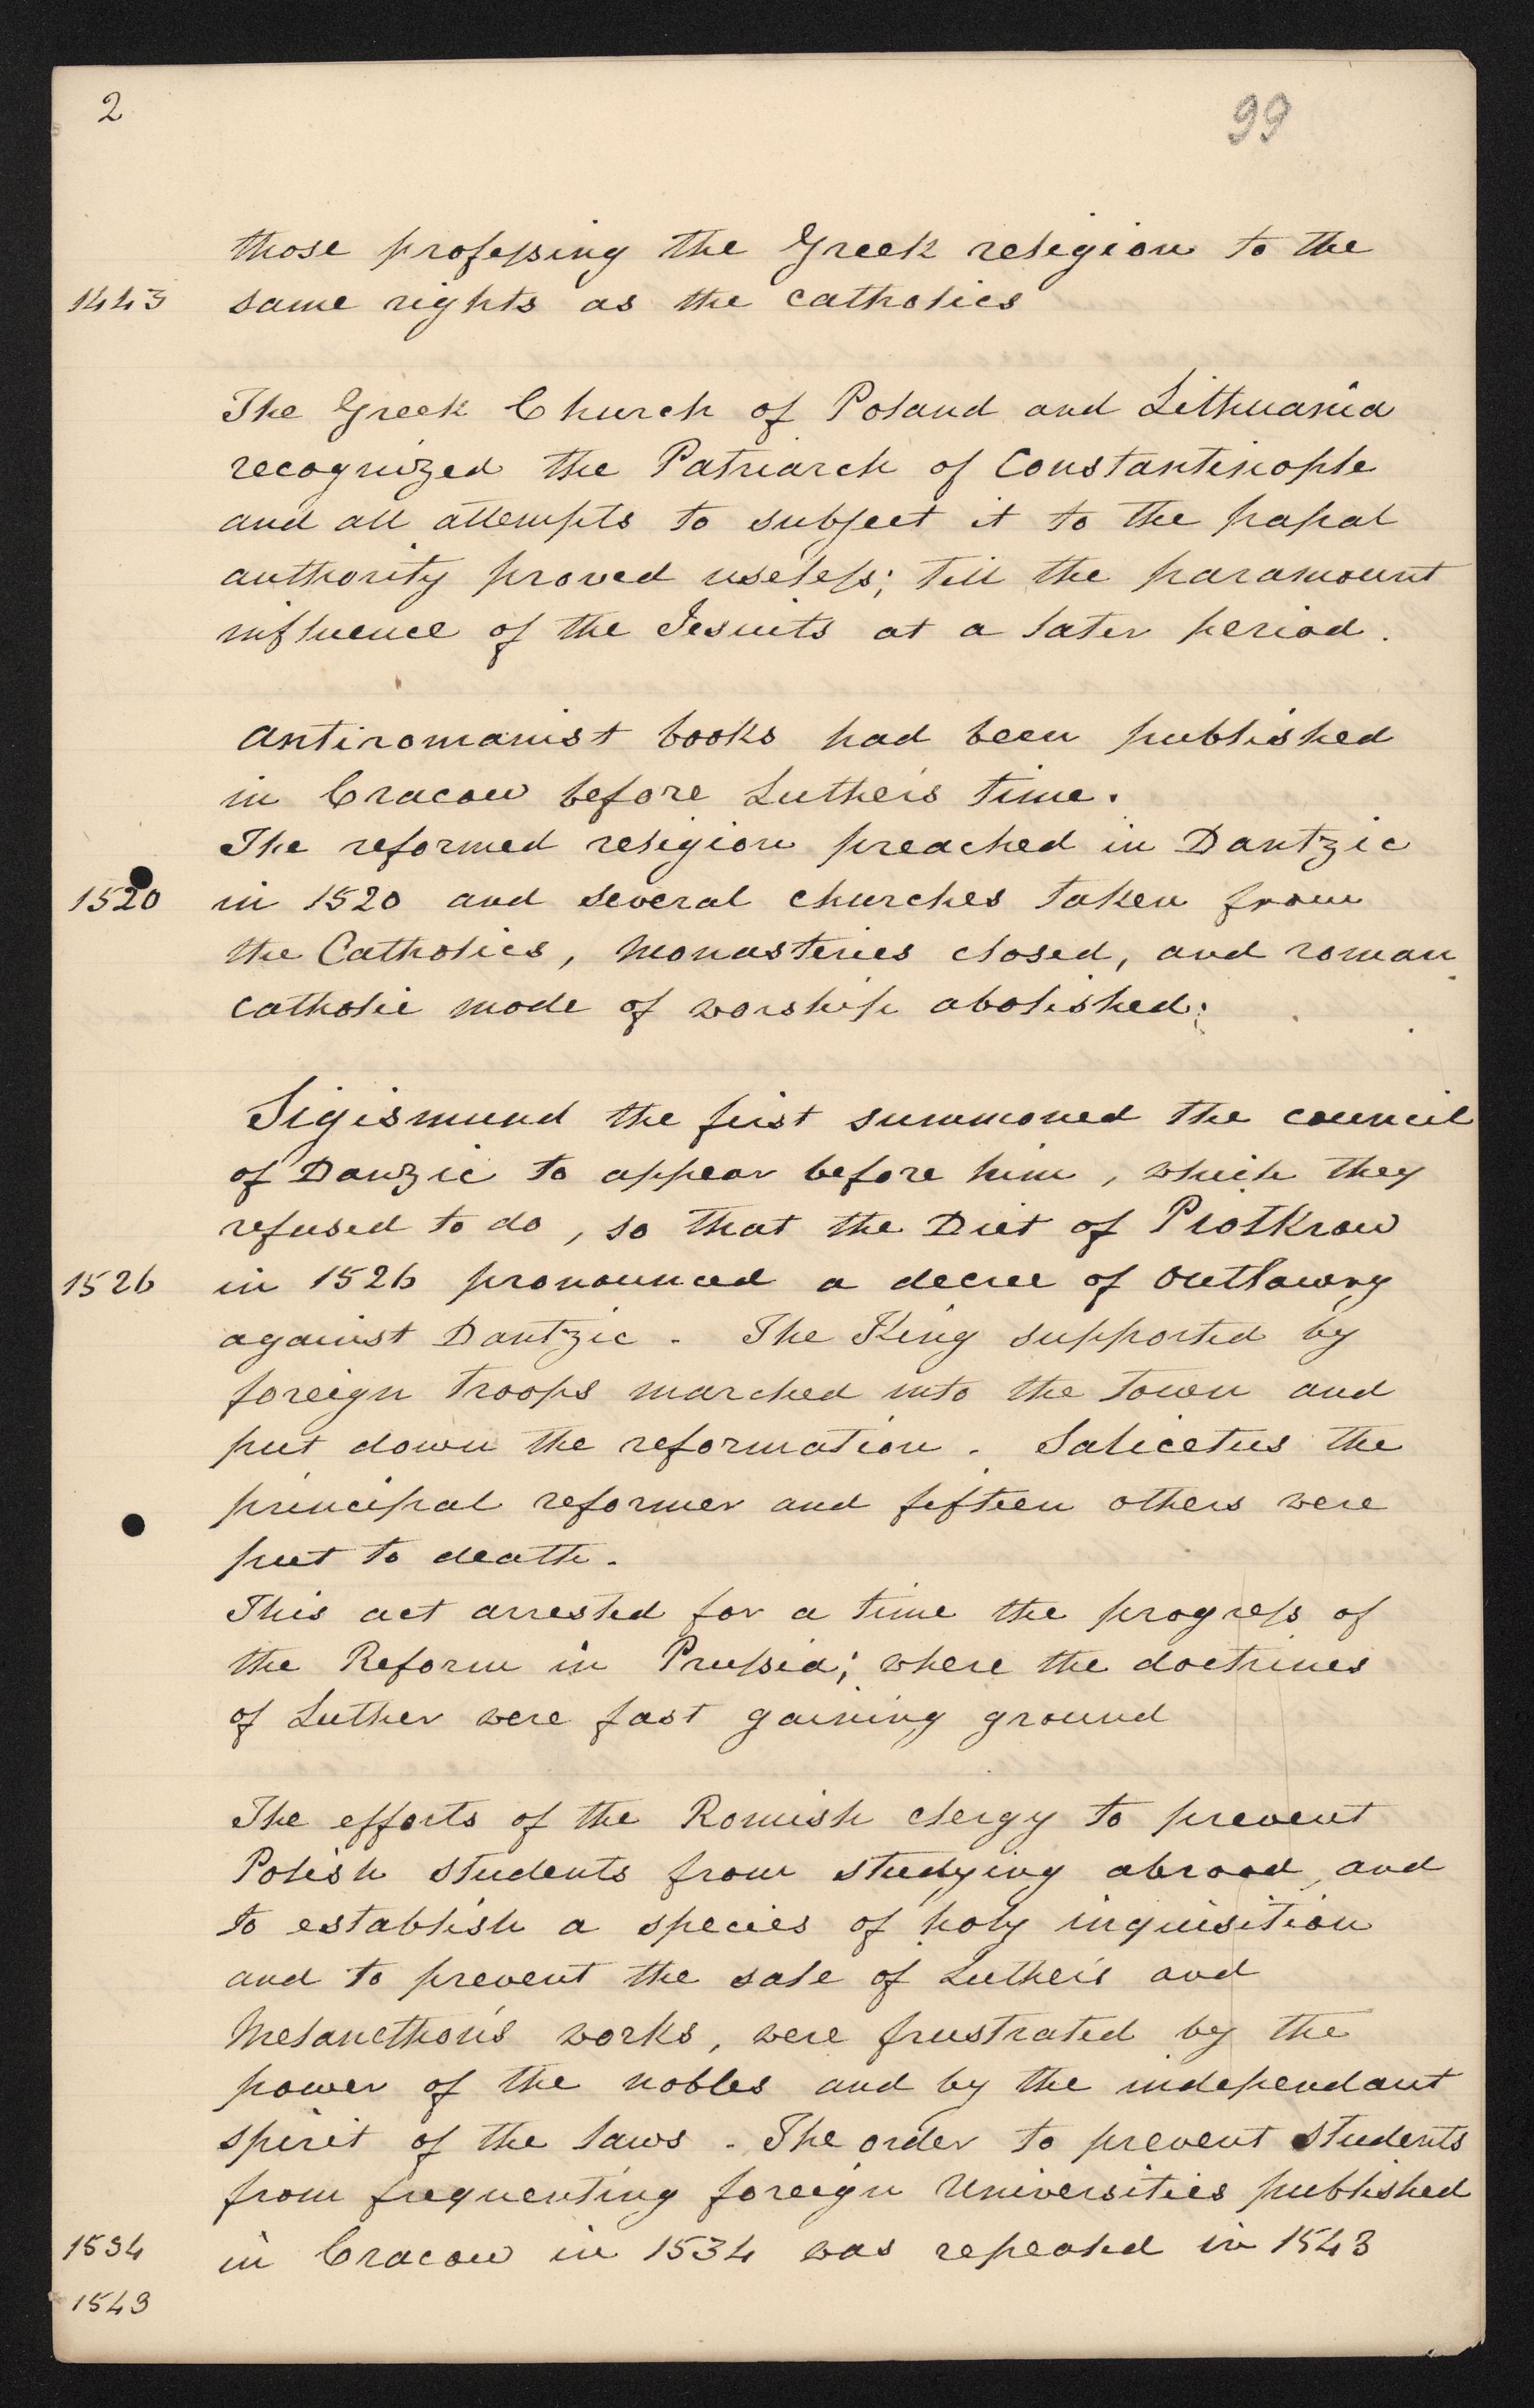 2
99
those professing the Greek religion to the
1443 same rights as the catholics
The Greek Church of Poland and Lithuania
recognized the Patriarch of Constantinople
and all attempts to subject it to the papal
authority proved useless; till the paramount
influence of the Jesuits at a later period.
Antiromanist books had been published
in Cracow before Luther's time.
The reformed religion preached in Dantzic
1520 in 1520 and several churches taken from
the Catholics, Monasteries closed, and roman
catholic mode of worship abolished;
Sigismund the first summoned the council
of Danzic to appear before him, which they
refused to do, so that the Diet of Piotkrow
1526 in 1526 pronounced a decree of outlawry
against Dantzic. The King supported by
foreign troops marched into the town and
put down the reformation. Salicetus the
principal reformer and fifteen others were
put to death.
This act arrested for a time the progress of
the Reform in Prussia; where the doctrines
of Luther were fast gaining ground
The efforts of the Romish clergy to prevent
Polish students from studying abroad, and
to establish a species of holy inquisition
and to prevent the sale of Luther's and
Melancthon's works, were frustrated by the
power of the nobles and by the independant
spirit of the laws. The order to prevent students
from frequenting foreign Universities published
1534 in Cracow in 1534 was repealed in 1543
1543